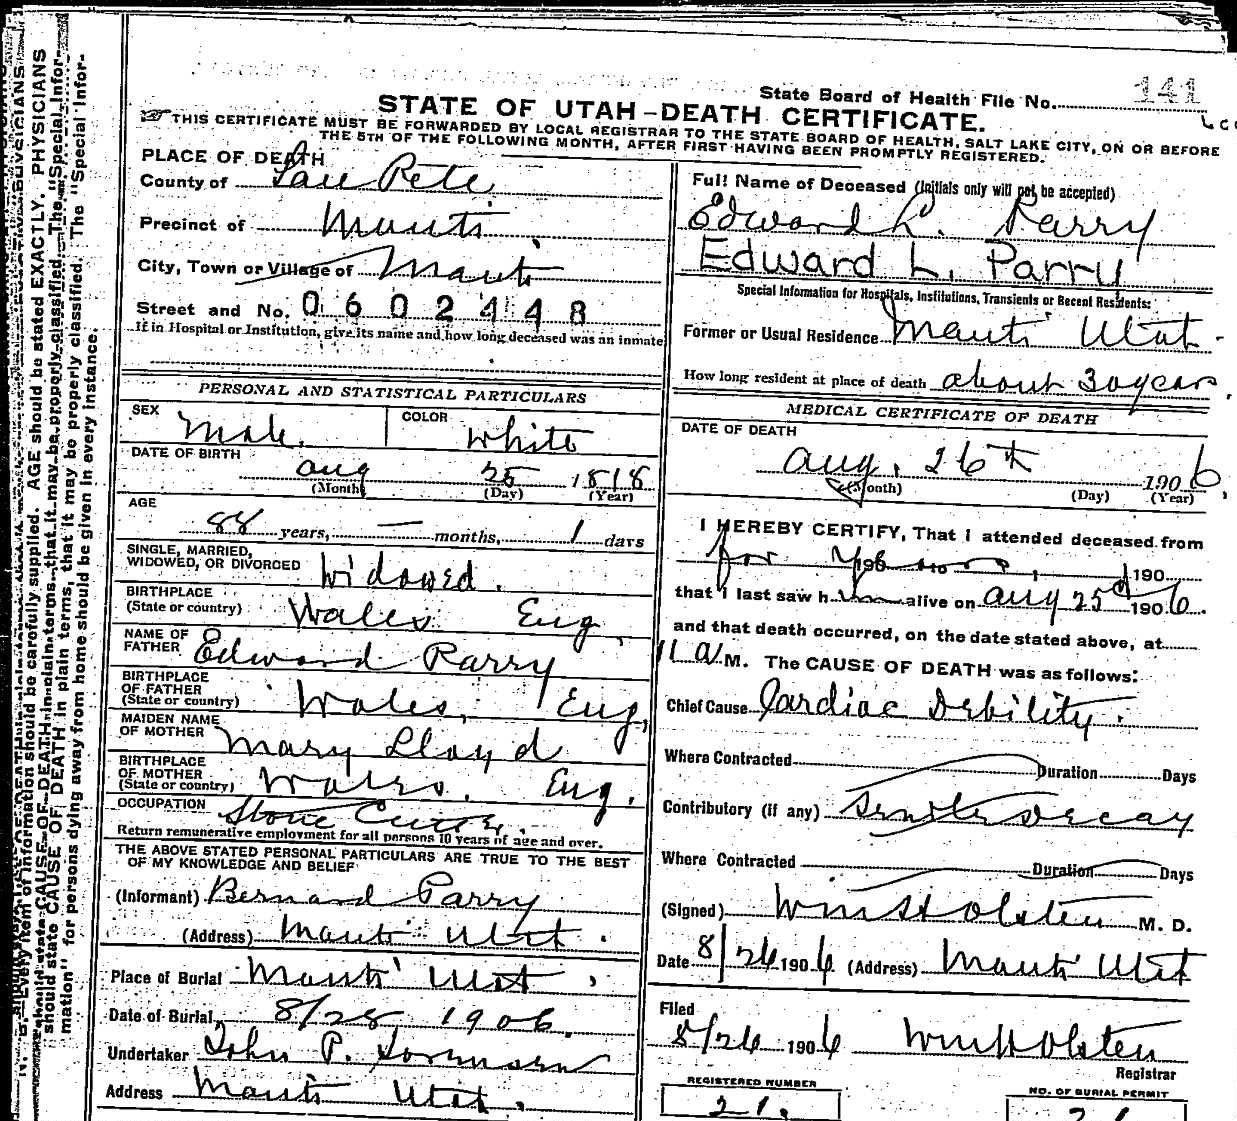 State Board of Health File No. 141
STATE OF UTAH–DEATH CERTIFICATE.
THIS CERTIFICATE MUST BE FORWARDED BY LOCAL REGISTRAR TO THE STATE BOARD OF HEALTH, SALT LAKE CITY, ON OR BEFORE
THE 5TH OF THE FOLLOWING MONTH, AFTER FIRST HAVING BEEN PROMPTLY REGISTERED.
PLACE OF DEATH
County of San Pete
Precinct of Manti
City, Town or Village of Manti
Street and No. 0602448
If in Hospital or Institution, give its name and how long deceased was an inmate
PERSONAL AND STATISTICAL PARTICULARS
SEX Male. COLOR White
DATE OF BIRTH
Aug 25 1818
(Month) (Day) (Year)
AGE
88 years, — months, 1 days
SINGLE, MARRIED,
WIDOWED, OR DIVORCED Widowed.
BIRTHPLACE
(State or country) Wales Eng,
NAME OF
FATHER Edward Parry
BIRTHPLACE
OF FATHER
(State or country) Wales, Eng,
MAIDEN NAME
OF MOTHER Mary Lloyd
BIRTHPLACE
OF MOTHER
(State or country) Wales. Eng.
OCCUPATION Stone Cutter.
Return remunerative employment for all persons 10 years of age and over.
THE ABOVE STATED PERSONAL PARTICULARS ARE TRUE TO THE BEST
OF MY KNOWLEDGE AND BELIEF
(Informant) Bernard Parry
(Address) Manti Utah.
Place of Burial Manti Utah
Date of Burial, 8/28 1906.
Undertaker John P.
Address Manti Utah.
Full Name of Deceased (Initials only will not be accepted)
Edward L. Parry
Edward L. Parry
Special Information for Hospitals, Institutions, Transients or Recent Residents:
Former or Usual Residence Manti Utah
How long resident at place of death about 30 years
MEDICAL CERTIFICATE OF DEATH
DATE OF DEATH
Aug. 26th 1906
(Month) (Day) (Year)
I HEREBY CERTIFY, That I attended deceased from
for 190 to 190
that I last saw him alive on Aug 25th 1906.
and that death occurred, on the date stated above, at
11 a M. The CAUSE OF DEATH was as follows:
Chief Cause Cardiac Debility.
Where Contracted Duration Days
Contributory (if any) Senile decay
Where Contracted Duration Days
(Signed) Wm H Olsten M. D.
Date 8/26 1906 (Address) Manti Utah
Filed
8/26 1906 Wm H Olsten
Registrar
REGISTERED NUMBER
21.
NO. OF BURIAL PERMIT
AGE should be stated EXACTLY. PHYSICIANS
should state CAUSE OF DEATH in plain terms, that it may be properly classified. The "Special Infor-
mation" for persons dying away from home should be given in every instance.